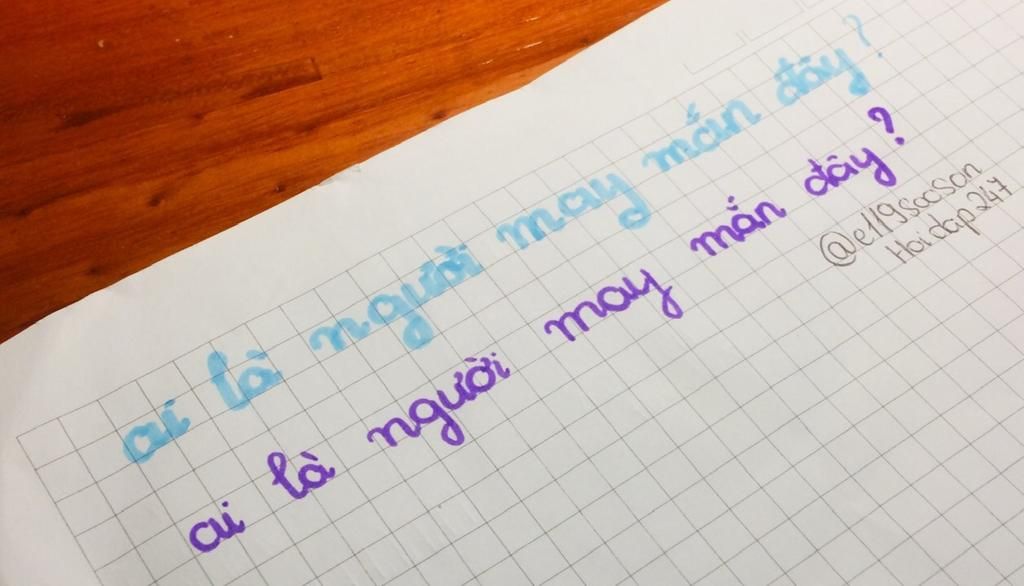 ai là người may mắn đây?
ai là người may mắn đây?
@e119socson
Hoidap247